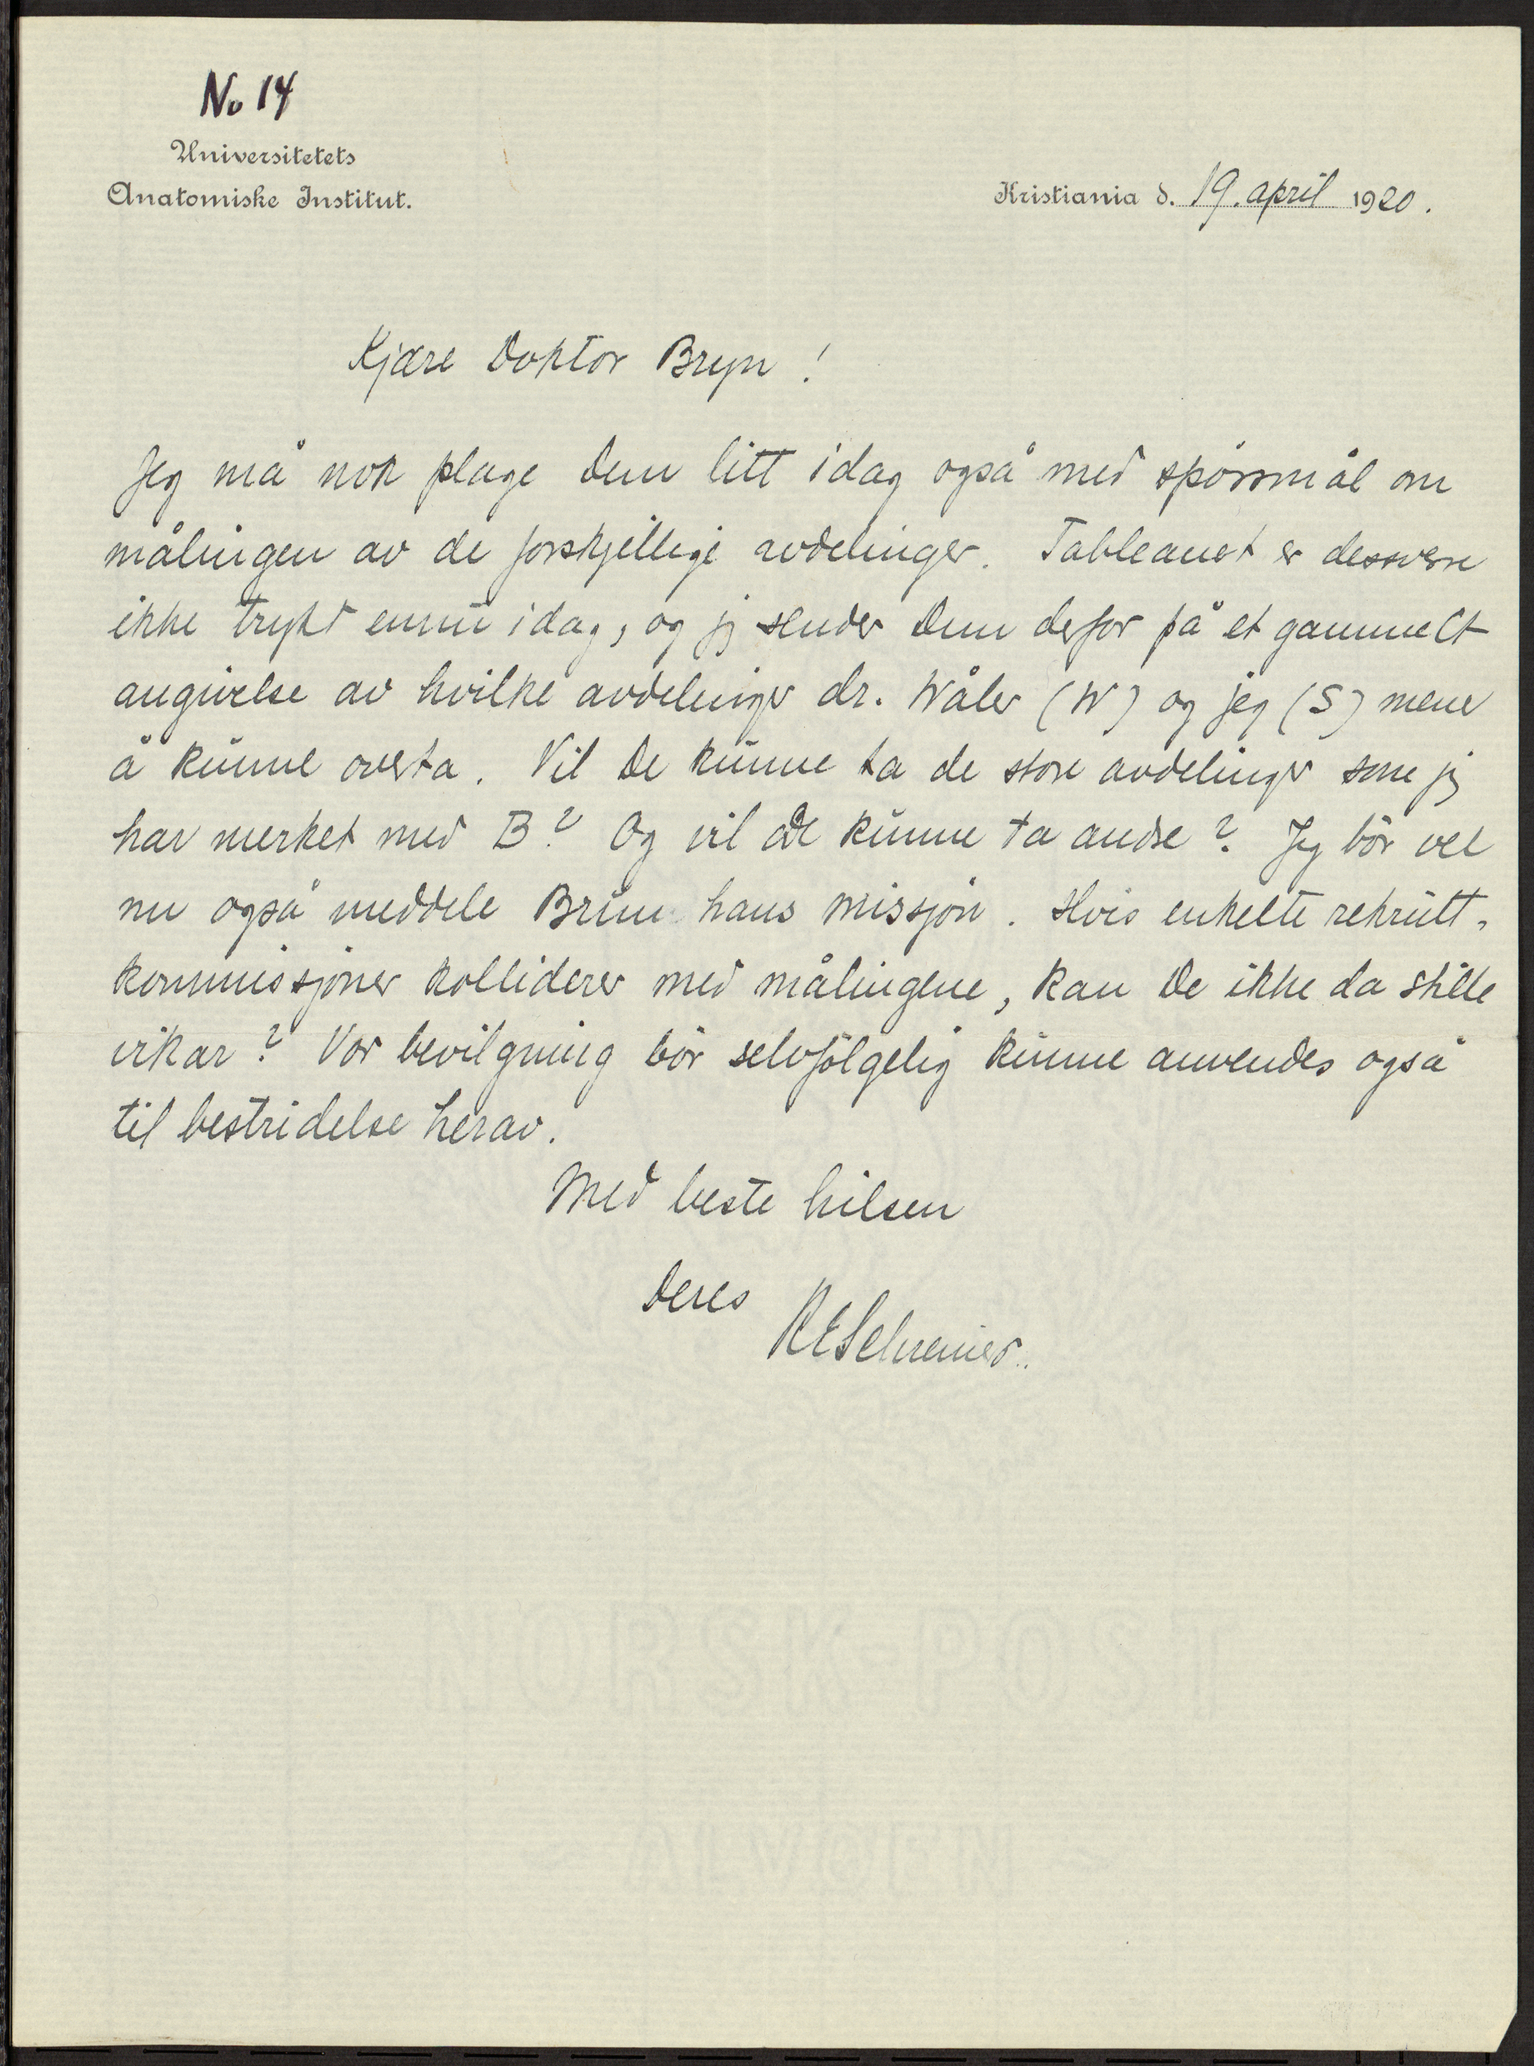 No 14
Universitetets
Anatomiske Institut.
Kristiania d. 19. april 1920.
Kjære Doktor Bryn!
Jeg må nok plage Dem litt idag også med spörsmål om
målingen av de forskjellige avdelinger. Tableauet er dessverre
ikke trykt ennu idag, og jeg sender Dem derfor på et gammelt
angivelse av hvilke avdelinger dr. Wåler (W) og jeg (S) mener
å kunne overta. Vil De kunne ta de store avdelinger som jeg
har merket med B? Og vil De kunne ta andre? Jeg bör vel
nu også meddele Brun hans missjon. Hvis enkelte rekrutt-
kommissjoner kolliderer med målingene, kan De ikke da stille
vikar? Vor bevilgning bör selvfölgelig kunne anvendes også
til bestridelse herav.
Med beste hilsen
Deres
KESchreiner.
NORSK POST